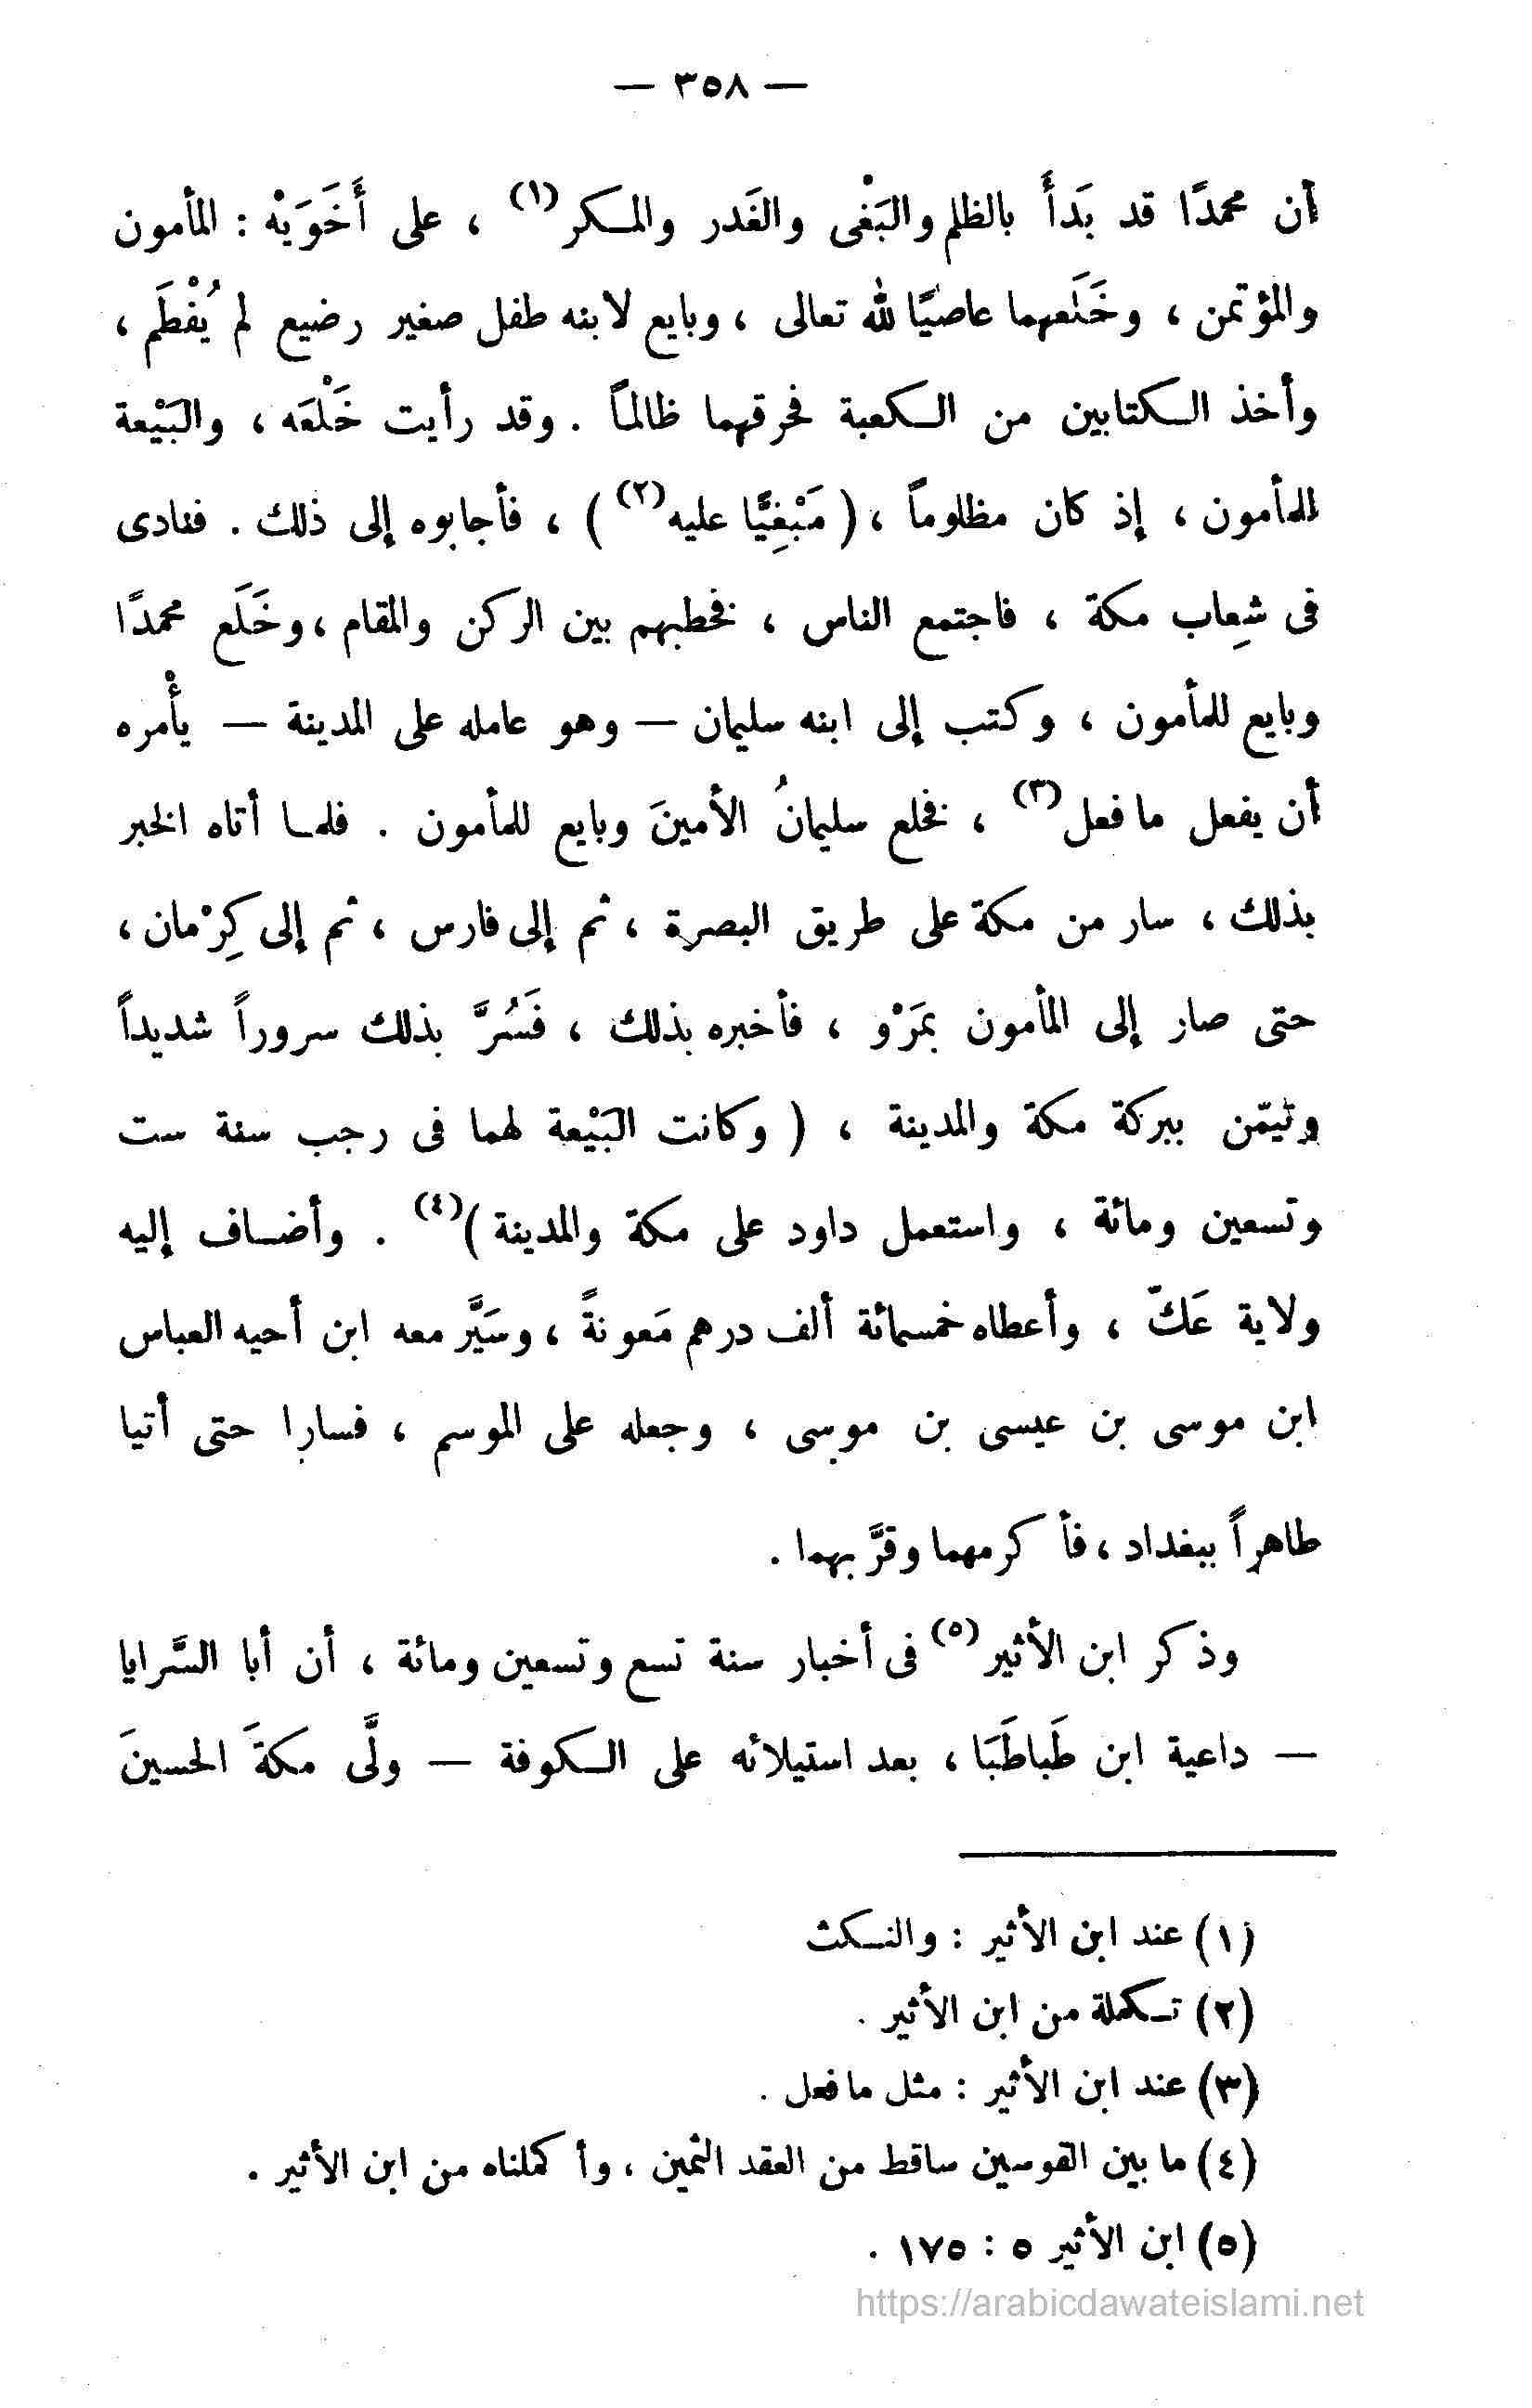 — ٣٥٨ —
أن محمدًا قد بَدأَ بالظلم والبَغْى والغَدر والمكر(١) ، على أَخَوَيْه : المأمون
والمؤتمن ، وخَلَعهما عاصيًا لله تعالى ، وبايع لابنه طفل صغير رضيع لم يُفْطَم ،
وأخذ الكتابين من الكعبة فحرقهما ظالماً . وقد رأيت خَلْعَه ، والبَيْعة
للمأمون ، إذ كان مظلوماً ، ( مَبْغِيًّا عليه(٢) ) ، فأجابوه إلى ذلك . فنادى
فى شِعاب مكة ، فاجتمع الناس ، فخطبهم بين الركن والمقام ، وخَلَع محمدًا
وبايع للمأمون ، وكتب إلى ابنه سليمان — وهو عامله على المدينة — يأْمره
أن يفعل ما فعل(٣) ، فخلع سليمانُ الأمينَ وبايع للمأمون . فلما أتاه الخبر
بذلك ، سار من مكة على طريق البصرة ، ثم إلى فارس ، ثم إلى كِرْمان ،
حتى صار إلى المأمون بمَرْو ، فأخبره بذلك ، فَسُرَّ بذلك سروراً شديداً
وتيمّن ببركة مكة والمدينة ، ( وكانت البَيْعة لهما فى رجب سنة ست
وتسعين ومائة ، واستعمل داود على مكة والمدينة )(٤) . وأضاف إليه
ولاية عَكّ ، وأعطاه خمسمائة ألف درهم مَعونةً ، وسَيَّر معه ابن أخيه العباس
ابن موسى بن عيسى بن موسى ، وجعله على الموسم ، فسارا حتى أتيا
طاهراً ببغداد ، فأكرمهما وقرَّبهما .
وذكر ابن الأثير(٥) فى أخبار سنة تسع وتسعين ومائة ، أن أبا السَّرايا
— داعية ابن طَباطَبَا ، بعد استيلائه على الكوفة — ولَّى مكةَ الحسينَ
(١) عند ابن الأثير : والنكث
(٢) تكملة من ابن الأثير .
(٣) عند ابن الأثير : مثل ما فعل .
(٤) ما بين القوسين ساقط من العقد الثمين ، وأكملناه من ابن الأثير .
(٥) ابن الأثير ٥ : ١٧٥ .
https://arabicdawateislami.net